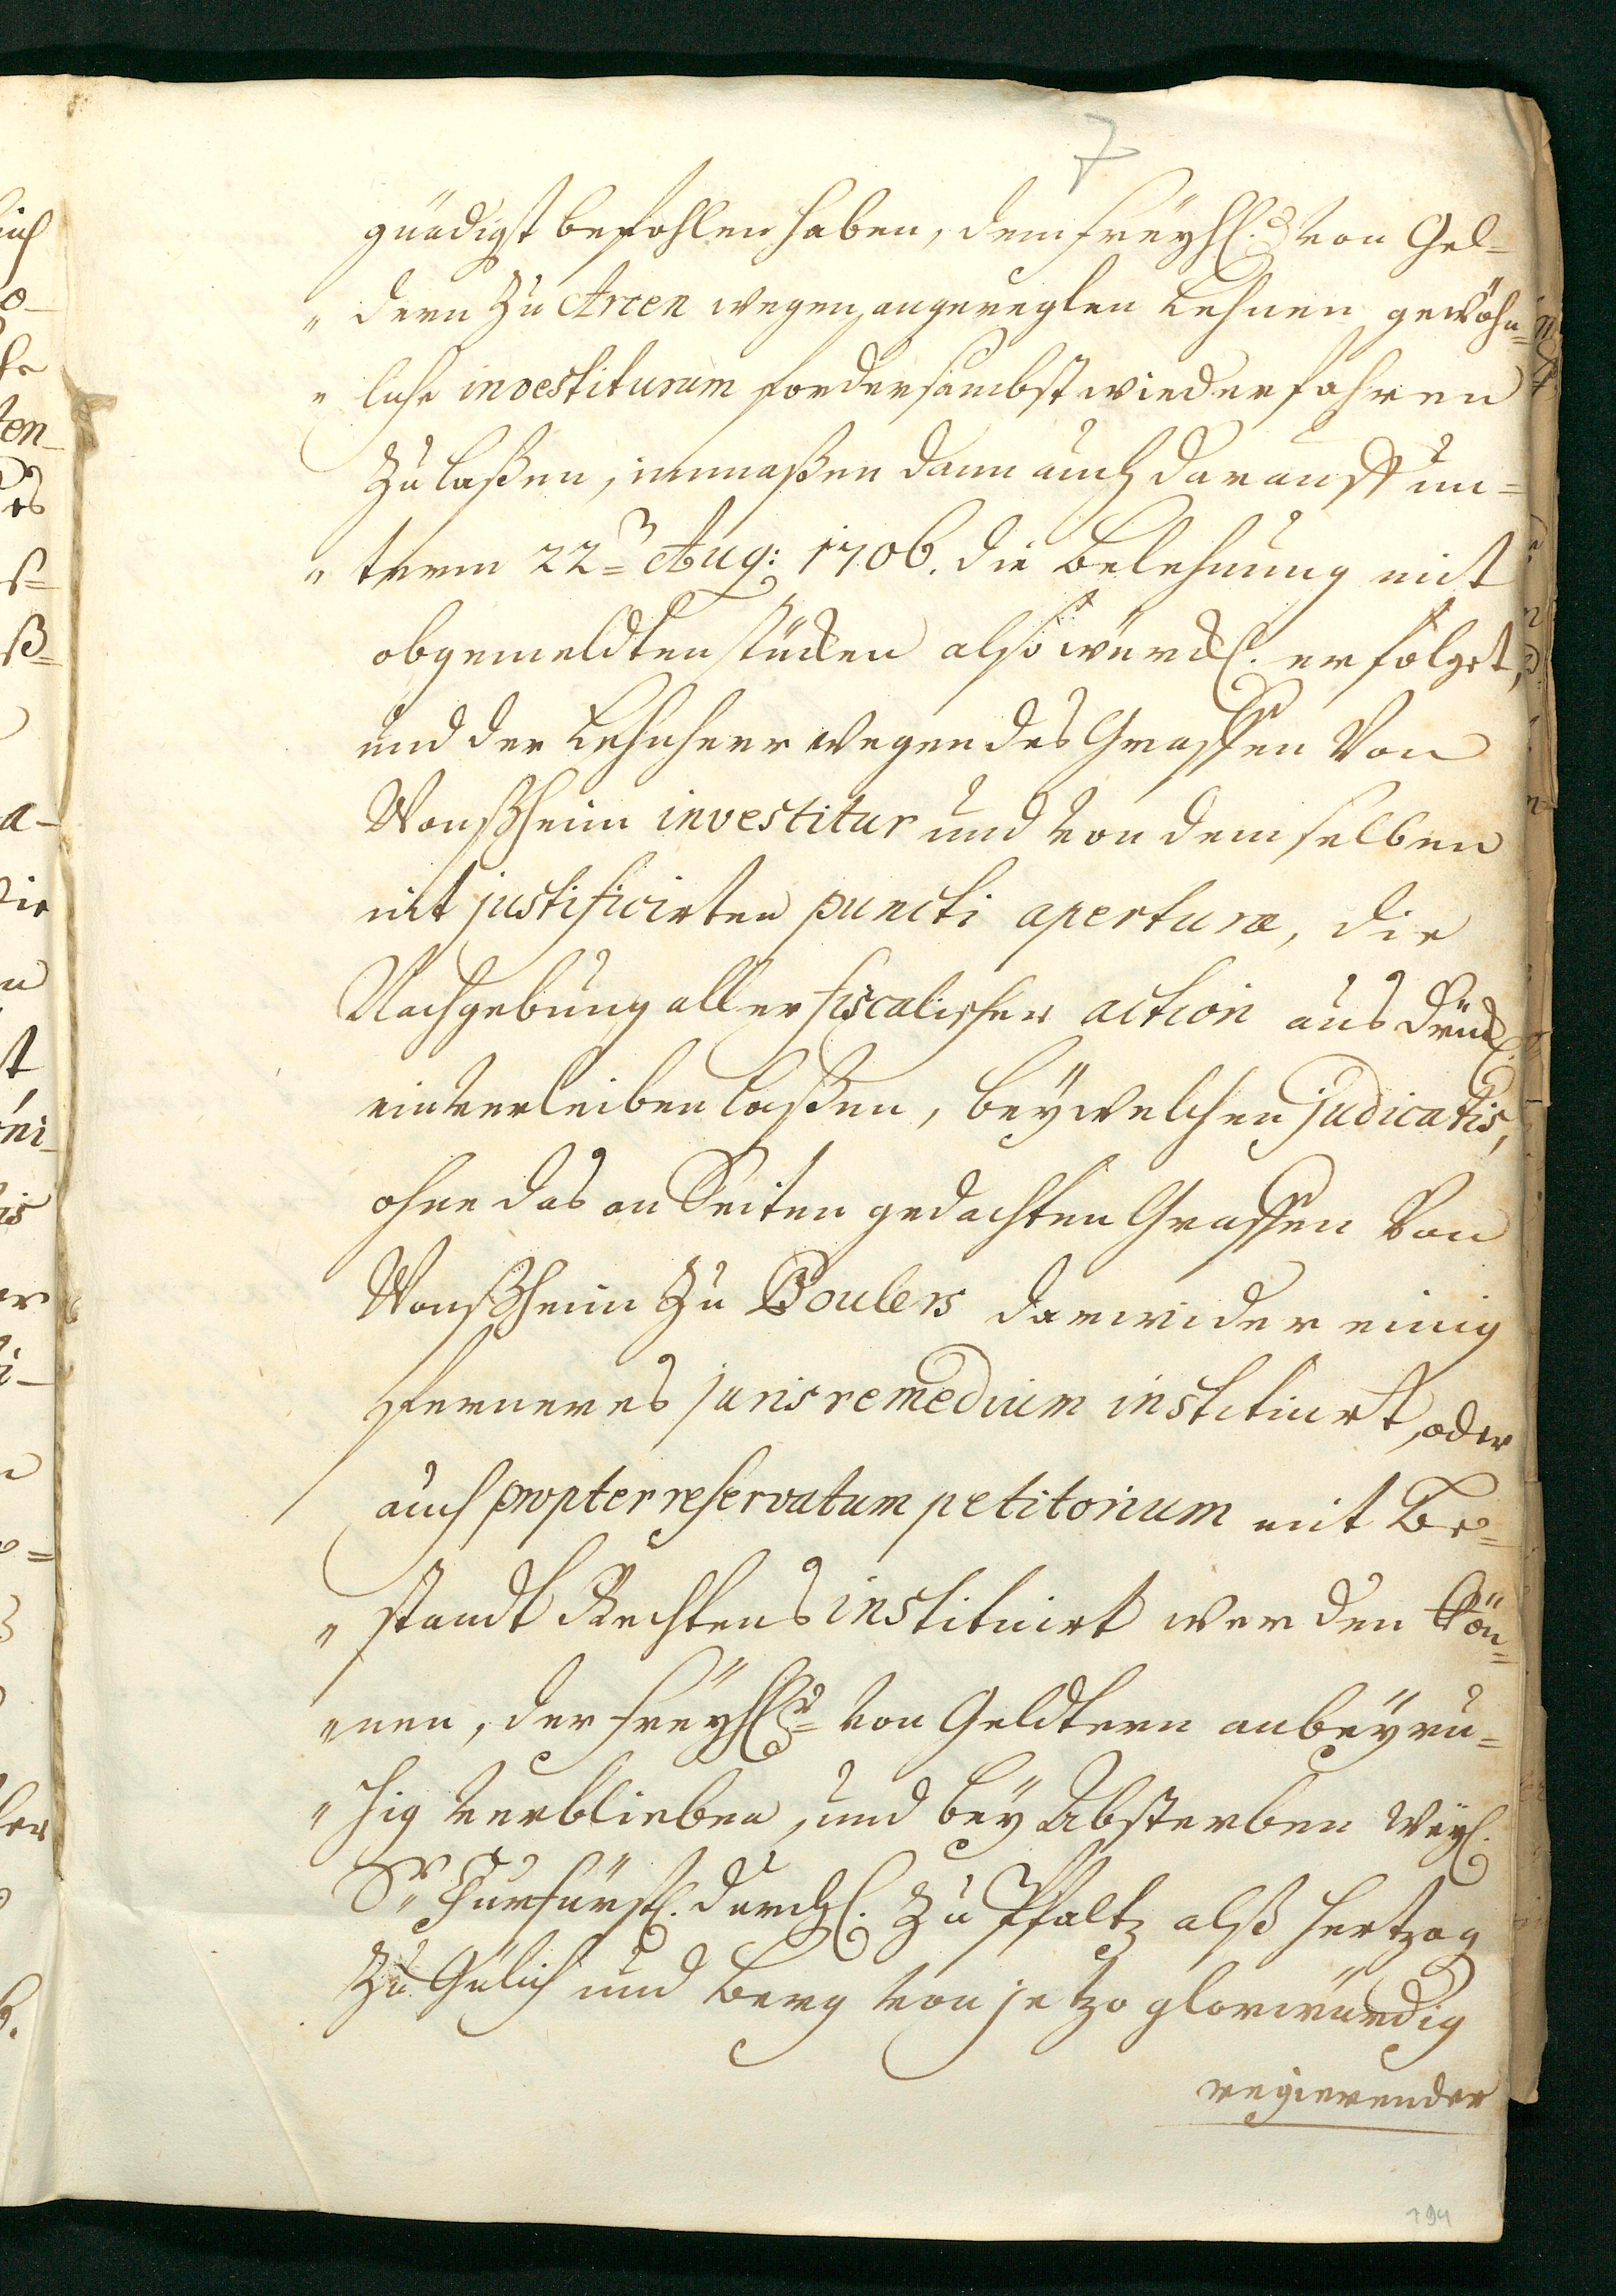 7
gnädigst befohlen haben, dem freyh. von Gel=
„ dern zu Arcen wegen angereglen Lehnen gewöhn=
„ liche investituram fordersambst wiederfahren
zu laßen, inmaßen dann auch darauff un=
„ term 22= Aug: 1706. die Belehnung mit
obgemeldten stücken also würckl. erfolget,
und der Lehnherr wegen des Graffen von
Wonßheim investitur und von demselben
nit justificirten puncti aperturæ, die
Nachgebung aller fiscalischer action ausdrückl.
einverleiben laßen, bey welchen judicatis,
ohne das an Seiten gedachten Graffen von
Wonßheim zu Boulers darwider einig
ferneres juris remedium instituirt, oder
auch propter reservatum petitorium mit Be=
„ standt Rechtens instituirt werden kön=
„ nen, der freyhr= von Geldtern anbey ru=
„ hig verblieben, und bey Absterben weyl.
Sr. Churfürstl. durchl. zu Pfaltz alß Hertzog
zu Gülich und Berg von jetzo glorwürdig
regierender
194